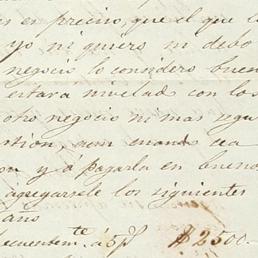 es en preciso, que el que es
yo, ni quiero ni debo
negocio lo considero buen
estara nivelad con los
otro negocio ni mas segu
stion, aun cuando sea
on y á pagarla en buenos
agregarsele los siguientes
año
te á 5 p% $2500.